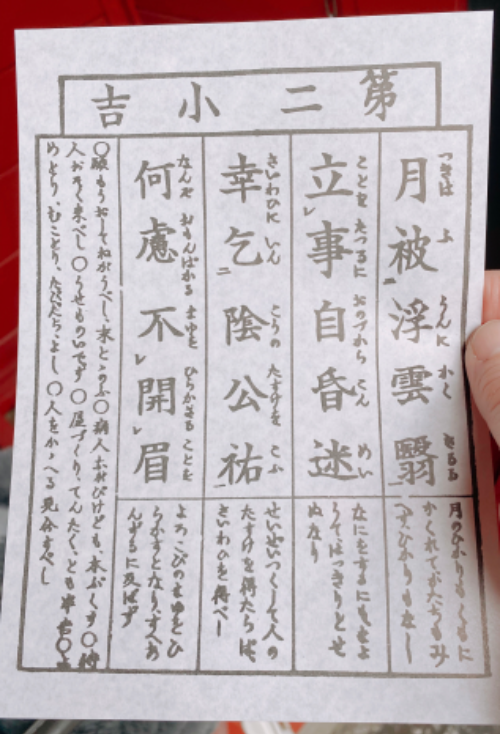 第二小吉
月被浮雲翳
つきは ふ うんに かく さるる
月のひかりもくもに
かくれてかたちもみ
へずひかりもなし
立事自昏迷
ことを たつるに おのづから こん めい
なにをするにもきよ
うてはつきりとせ
ぬなり
幸乞陰公祐
さいわひに いん こうの たすけを こふ
せいせいつくして人の
たすけを得たらば、
さいわひを得べし
何慮不開眉
なんぞ おもんばかる まゆを ひらかざる ことを
よろこびのまゆをひ
らかずとなり、すへあ
んずるに及ばず
〇願もうおしてねがうべし、末とゝのふ〇病人ながびけども、本ぷくす〇待
人おそく来べし〇うせものいです〇屋づくり、てんたく、とも半吉〇よ
めとり、むことり、たびだち、よし〇人をかゝへる見合すべし